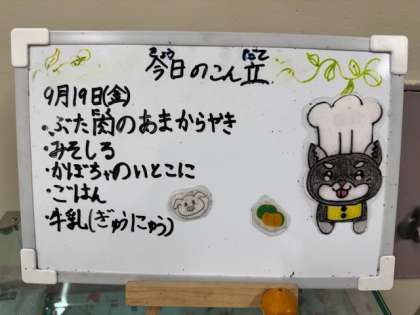 今日のこん立
きょう だて
9月19日(金)
・ぶた肉のあまからやき
にく
・みそしる
・かぼちゃのいとこに
・ごはん
・牛乳(ぎゅうにゅう)